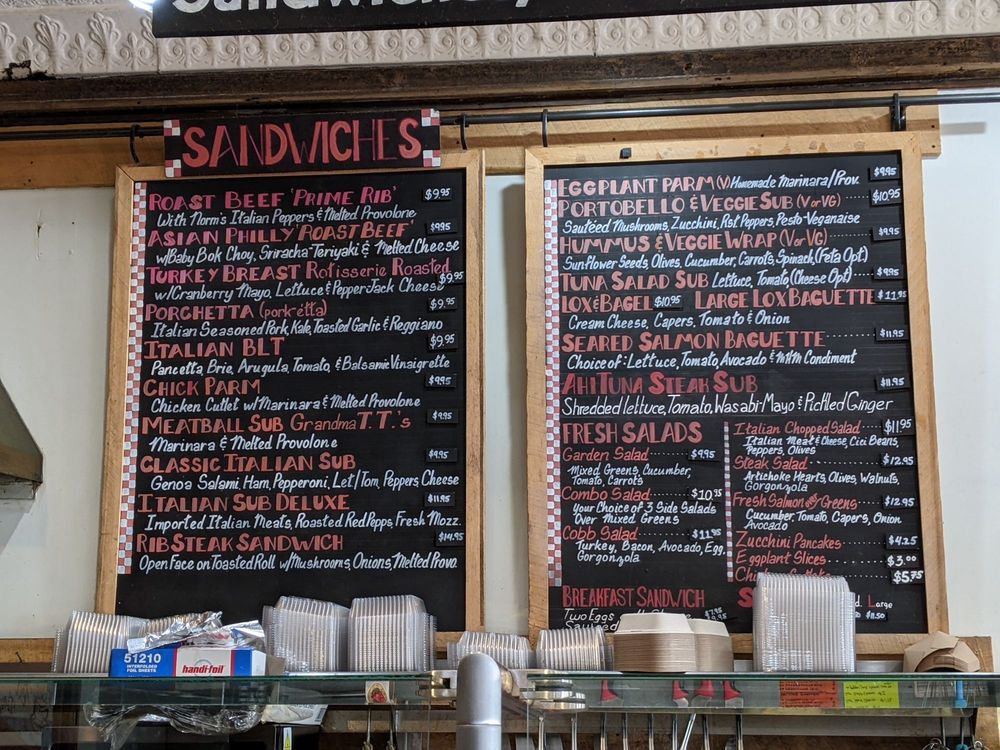 SANDWICHES
ROAST BEEF 'PRIME RIB' $9.95
With Norm's Italian Peppers & Melted Provolone
ASIAN PHILLY 'ROAST BEEF' $9.95
w/Baby Bok Choy, Sriracha-Teriyaki & Melted Cheese
TURKEY BREAST Rotisserie Roasted $9.95
w/Cranberry Mayo, Lettuce & Pepper Jack Cheese
PORCHETTA (pork·etta) $9.95
Italian Seasoned Pork, Kale, Toasted Garlic & Reggiano
ITALIAN BLT $9.95
Pancetta, Brie, Arugula, Tomato, & Balsamic Vinaigrette
CHICK PARM $9.95
Chicken Cutlet w/Marinara & Melted Provolone
MEATBALL SUB Grandma T.T.'s $9.95
Marinara & Melted Provolone
CLASSIC ITALIAN SUB $9.95
Genoa Salami, Ham, Pepperoni, Let/Tom, Peppers, Cheese
ITALIAN SUB DELUXE $11.95
Imported Italian Meats, Roasted Red Pepps, Fresh Mozz.
RIB STEAK SANDWICH $14.95
Open Face on Toasted Roll w/Mushrooms, Onions, Melted Provo.
EGGPLANT PARM (V) Homemade Marinara/Prov. $9.95
PORTOBELLO & VEGGIE SUB (V or VG) $10.95
Sautéed Mushrooms, Zucchini, Rst. Peppers, Pesto-Veganaise
HUMMUS & VEGGIE WRAP (V or VG) $9.95
Sunflower Seeds, Olives, Cucumber, Carrots, Spinach, (Feta Opt)
TUNA SALAD SUB Lettuce, Tomato, (Cheese Opt) $9.95
LOX & BAGEL $10.95 LARGE LOX BAGUETTE $11.95
Cream Cheese, Capers, Tomato & Onion
SEARED SALMON BAGUETTE $11.95
Choice of: Lettuce, Tomato, Avocado & Condiment
AHI TUNA STEAK SUB $11.95
Shredded lettuce, Tomato, Wasabi Mayo & Pickled Ginger
FRESH SALADS
Garden Salad $9.95
Mixed Greens, Cucumber,
Tomato, Carrots
Combo Salad $10.95
Your Choice of 3 Side Salads
Over Mixed Greens
Cobb Salad $11.95
Turkey, Bacon, Avocado, Egg,
Gorgonzola
Italian Chopped Salad $11.95
Italian Meat & Cheese, Cici Beans,
Peppers, Olives
Steak Salad $12.95
Artichoke Hearts, Olives, Walnuts,
Gorgonzola
Fresh Salmon and Greens $12.95
Cucumber, Tomato, Capers, Onion
Avocado
Zucchini Pancakes $4.25
Eggplant Slices $3.00
$5.75
BREAKFAST SANDWICH
Two Eggs
Large
$11.50
51210
INTERFOLDED
FOIL SHEETS
handi-foil